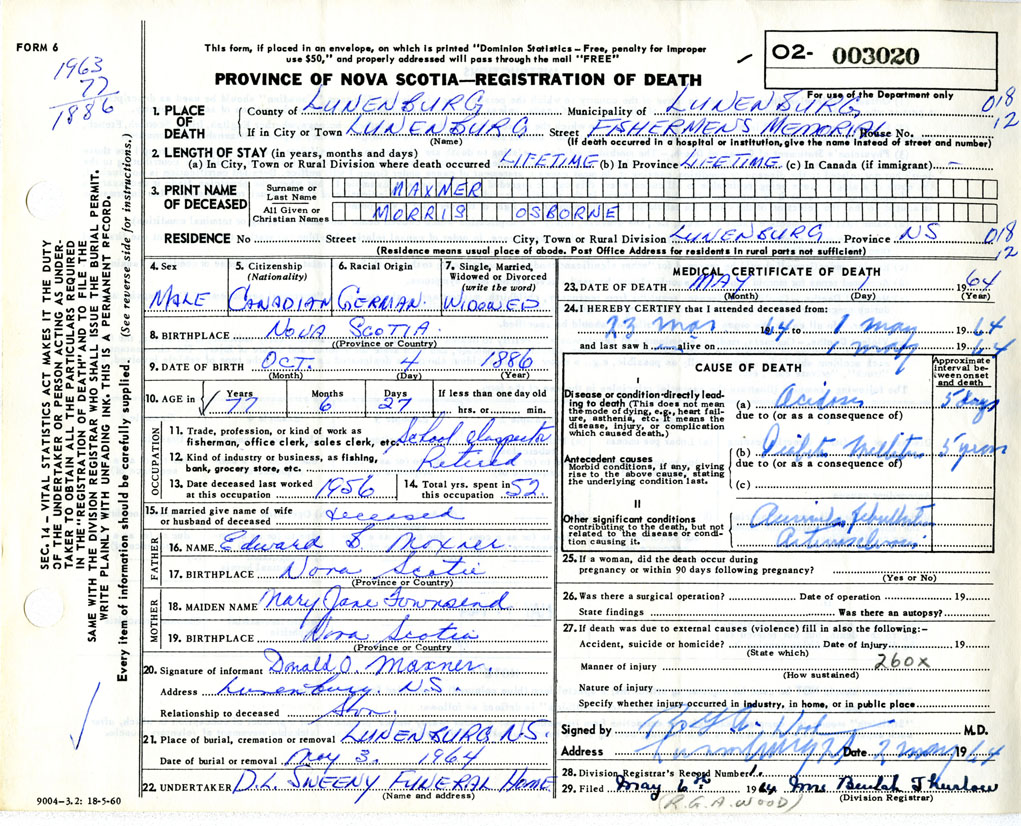 FORM 6
1963
77
1886
This form, if placed in an envelope, on which is printed "Dominion Statistics – Free, penalty for improper
use $50," and properly addressed will pass through the mail "FREE"
PROVINCE OF NOVA SCOTIA—REGISTRATION OF DEATH
02- 003020
For use of the Department only
018
12
1. PLACE OF DEATH
County of LUNENBURG Municipality of LUNENBURG
If in City or Town LUNENBURG Street FISHERMEN'S MEMORIAL House No.
(Name) (If death occurred in a hospital or institution, give the name instead of street and number)
2. LENGTH OF STAY (in years, months and days)
(a) In City, Town or Rural Division where death occurred LIFETIME (b) In Province LIFETIME (c) In Canada (if immigrant) –
3. PRINT NAME OF DECEASED
Surname or Last Name MAXNER
All Given or Christian Names MORRIS OSBORNE
RESIDENCE No Street City, Town or Rural Division LUNENBURG Province NS 018
12
(Residence means usual place of abode. Post Office Address for residents in rural parts not sufficient)
4. Sex
MALE
5. Citizenship
(Nationality)
CANADIAN
6. Racial Origin
GERMAN.
7. Single, Married,
Widowed or Divorced
(write the word)
WIDOWED
8. BIRTHPLACE NOVA SCOTIA.
(Province or Country)
9. DATE OF BIRTH OCT. 4 1886
(Month) (Day) (Year)
10. AGE in Years Months Days If less than one day old
77 6 27 hrs. or min.
OCCUPATION
11. Trade, profession, or kind of work as
fisherman, office clerk, sales clerk, etc. School Inspector
12. Kind of industry or business, as fishing,
bank, grocery store, etc. Retired
13. Date deceased last worked
at this occupation 1956
14. Total yrs. spent in
this occupation 52
15. If married give name of wife
or husband of deceased deceased
FATHER
16. NAME Edward Maxner.
17. BIRTHPLACE Nova Scotia
(Province or Country)
MOTHER
18. MAIDEN NAME Mary Jane Townsend
19. BIRTHPLACE Nova Scotia
(Province or Country)
20. Signature of informant Donald O. Maxner.
Address Lunenburg. N.S.
Relationship to deceased Son.
21. Place of burial, cremation or removal LUNENBURG N.S.
Date of burial or removal May 3. 1964
22. UNDERTAKER D.L. SWEENY FUNERAL HOME
(Name and address)
9004–3.2: 18-5-60
MEDICAL CERTIFICATE OF DEATH
23. DATE OF DEATH MAY 1 1964
(Month) (Day) (Year)
24. I HEREBY CERTIFY that I attended deceased from:
23 Mar 1964 to 1 May 1964
and last saw h alive on 1 May 1964
CAUSE OF DEATH
Approximate
interval be-
tween onset
and death
I
Disease or condition directly lead-
ing to death (This does not mean
the mode of dying, e.g., heart fail-
ure, asthenia, etc. It means the
disease, injury, or complication
which caused death.)
(a) Acidosis 5 days
due to (or as a consequence of)
Antecedent causes
Morbid conditions, if any, giving
rise to the above cause, stating
the underlying condition last.
(b) Diabetes Mellitus 5 years
due to (or as a consequence of)
(c)
II
Other significant conditions
contributing to the death, but not
related to the disease or condi-
tion causing it.
Auricular Fibrillation
Arteriosclerosis
25. If a woman, did the death occur during
pregnancy or within 90 days following pregnancy?
(Yes or No)
26. Was there a surgical operation? Date of operation 19
State findings Was there an autopsy?
27. If death was due to external causes (violence) fill in also the following:–
Accident, suicide or homicide? Date of injury 19
(State which)
Manner of injury 260X
(How sustained)
Nature of injury
Specify whether injury occurred in industry, in home, or in public place
Signed by Wood M.D.
Address Lunenburg Date 2 May 1964
28. Division Registrar's Record Number
29. Filed May 6th 1964 Mrs Beulah Thurlow
(R.G.A. WOOD) (Division Registrar)
SEC. 14 – VITAL STATISTICS ACT MAKES IT THE DUTY
OF THE UNDERTAKER OR PERSON ACTING AS UNDER-
TAKER TO OBTAIN ALL THE PARTICULARS REQUIRED
IN THE "REGISTRATION OF DEATH" AND TO FILE THE
SAME WITH THE DIVISION REGISTRAR WHO SHALL ISSUE THE BURIAL PERMIT.
WRITE PLAINLY WITH UNFADING INK. THIS IS A PERMANENT RECORD.
Every item of information should be carefully supplied. (See reverse side for instructions.)